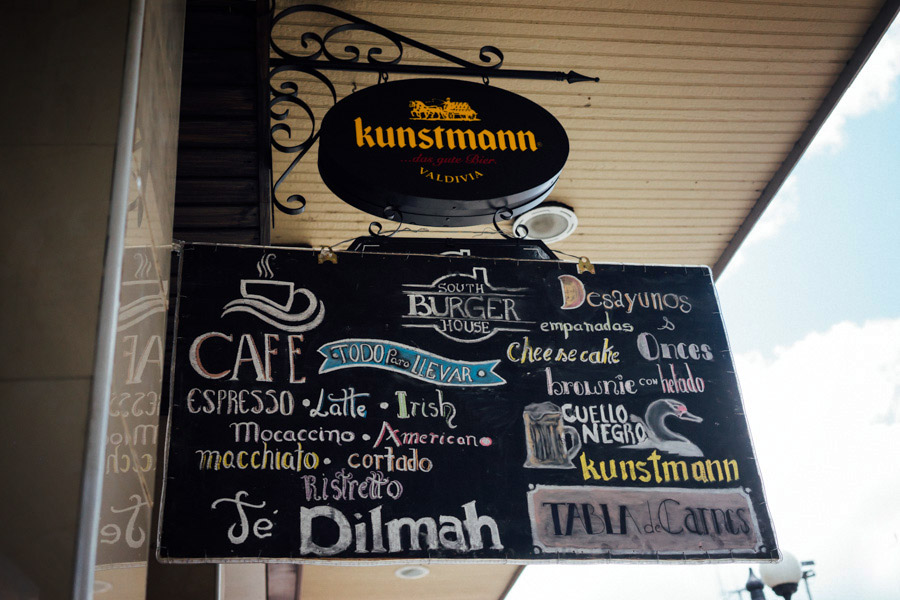 kunstmann
...das gute Bier.
VALDIVIA
SOUTH
BURGER
HOUSE
CAFE
TODO para LLEVAR
ESPRESSO • Latte • Irish
Mocaccino • Americano
macchiato • cortado
Ristretto
Té Dilmah
Desayunos
empanadas
cheesecake Onces
brownie con helado
CUELLO
NEGRO
kunstmann
TABLA de Carnes